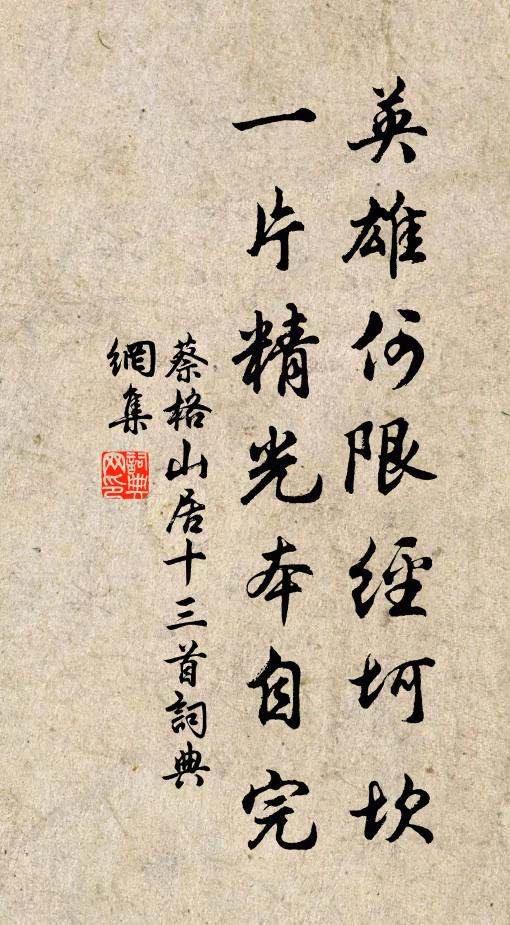 英雄何限經坷坎
一片精光本自完
蔡格山居十三首詞典
網集
詞典
网印